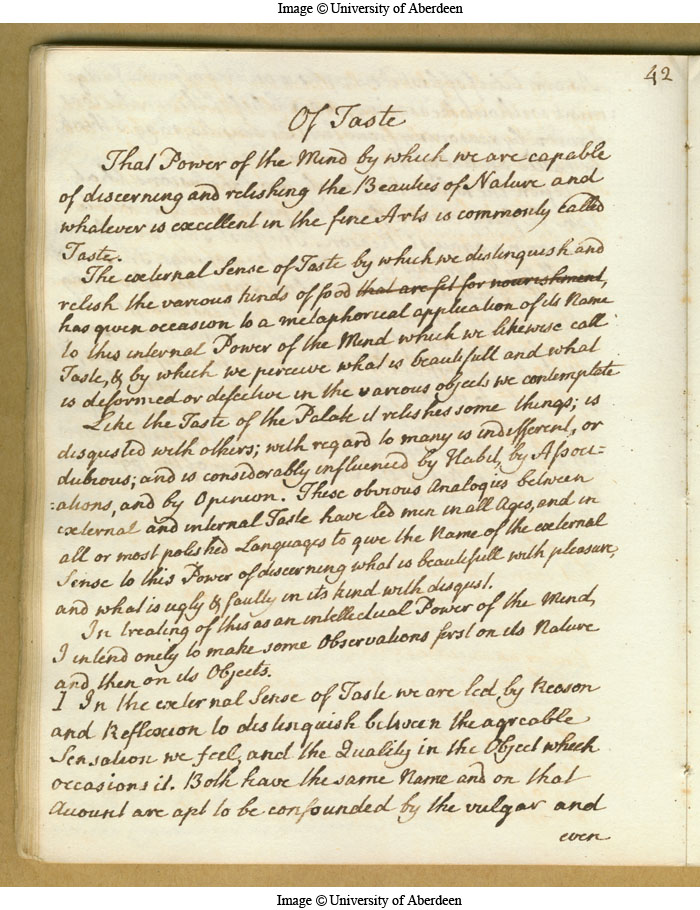 Image © University of Aberdeen
42
Of Taste
That Power of the Mind by which we are capable
of discerning and relishing the Beauties of Nature and
whatever is excellent in the fine Arts is commonly called
Taste.
The external Sense of Taste by which we distinguish and
relish the various kinds of food that are fit for nourishment,
has given occasion to a metaphorical application of its Name
to this internal Power of the Mind which we likewise call
Taste, & by which we perceive what is beautifull and what
is deformed or defective in the various objects we contemplate
Like the Taste of the Palate it relishes some things; is
disgusted with others; with regard to many is indifferent, or
dubious; and is considerably influenced by Habit, by Associ=
=ations, and by Opinion. These obvious Analogies between
external and internal Taste have led men in all Ages, and in
all or most polished Languages to give the Name of the external
Sense to this Power of discerning what is beautifull with pleasure,
and what is ugly & faulty in its kind with disgust.
In treating of this as an intellectual Power of the Mind,
I intend onely to make some Observations first on its Nature
and then on its Objects.
1 In the external Sense of Taste we are led by Reason
and Reflexion to distinguish between the agreable
Sensation we feel, and the Quality in the Object which
occasions it. Both have the same Name and on that
Account are apt to be confounded by the vulgar and
even
Image © University of Aberdeen